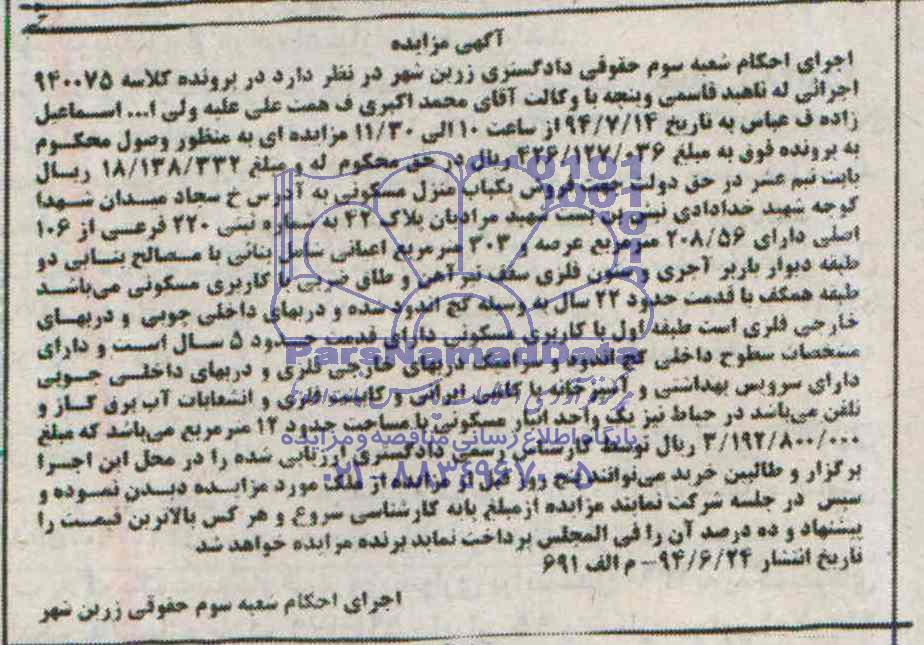 آگهی مزایده
اجرای احکام شعبه سوم حقوقی دادگستری زرین شهر در نظر دارد در پرونده کلاسه ۹۴۰۰۷۵
اجرائی له ناهید قاسمی وینچه با وکالت آقای محمد اکبری ف همت علی علیه ولی ا... اسماعیل
زاده ف عباس به تاریخ ۹۴/۷/۱۴ از ساعت ۱۰ الی ۱۱/۳۰ مزایده ای به منظور وصول محکوم
به پرونده فوق به مبلغ ۴۲۶/۱۲۷/۰۳۶ ریال در حق محکوم له و مبلغ ۱۸/۱۳۸/۳۳۲ ریال
بابت نیم عشر در حق دولت جهت فروش یکباب منزل مسکونی به آدرس خ سجاد میدان شهدا
کوچه شهید خدادادی نبش بن بست شهید مرادیان پلاک ۴۲ به شماره ثبتی ۲۲۰ فرعی از ۱۰۶
اصلی دارای ۲۰۸/۵۶ مترمربع عرصه و ۳۰۳ مترمربع اعیانی شامل بنائی با مصالح بنایی دو
طبقه دیوار باربر آجری و ستون فلزی سقف تیرآهن و طاق ضربی با کاربری مسکونی می‌باشد
طبقه همکف با قدمت حدود ۲۲ سال به وسیله گچ اندود شده و دربهای داخلی چوبی و دربهای
خارجی فلزی است طبقه اول با کاربری مسکونی دارای قدمت حدود ۵ سال است و دارای
مشخصات سطوح داخلی گچ اندود و سرامیک دربهای خارجی فلزی و دربهای داخلی چوبی
دارای سرویس بهداشتی و آشپزخانه با کاشی ایرانی و کابینت فلزی و انشعابات آب برق گاز و
تلفن می‌باشد در حیاط نیز یک واحد انبار مسکونی با مساحت حدود ۱۲ مترمربع می‌باشد که مبلغ
۳/۱۹۲/۸۰۰/۰۰۰ ریال توسط کارشناس رسمی دادگستری ارزیابی شده را در محل این اجرا
برگزار و طالبین خرید می‌توانند پنج روز قبل از مزایده از ملک مورد مزایده دیدن نموده و
سپس در جلسه شرکت نمایند مزایده ازمبلغ پایه کارشناسی شروع و هر کس بالاترین قیمت را
پیشنهاد و ده درصد آن را فی المجلس پرداخت نماید برنده مزایده خواهد شد
تاریخ انتشار ۹۴/۶/۲۴ – م الف ۶۹۱
اجرای احکام شعبه سوم حقوقی زرین شهر
ParsNamadData
پایگاه اطلاع رسانی مناقصه و مزایده
۰۲۱-۸۸۳۴۹۶۷۰-۵